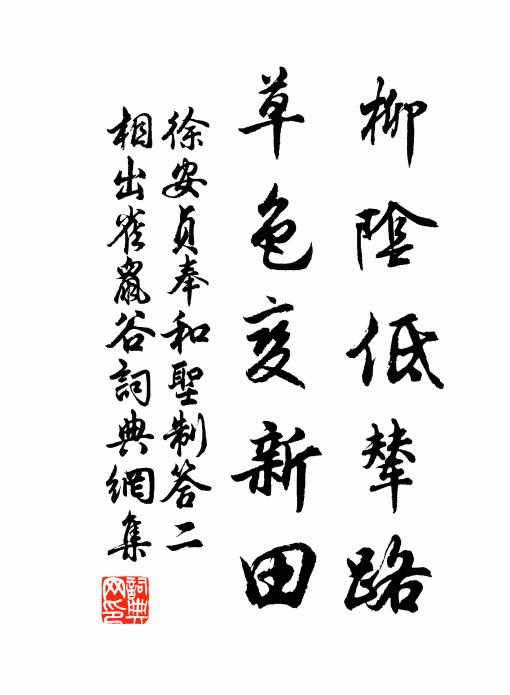 柳陰低輦路
草色变新田
徐安貞奉和聖制答二
相出雀鼠谷詞典網集
詞典
网印